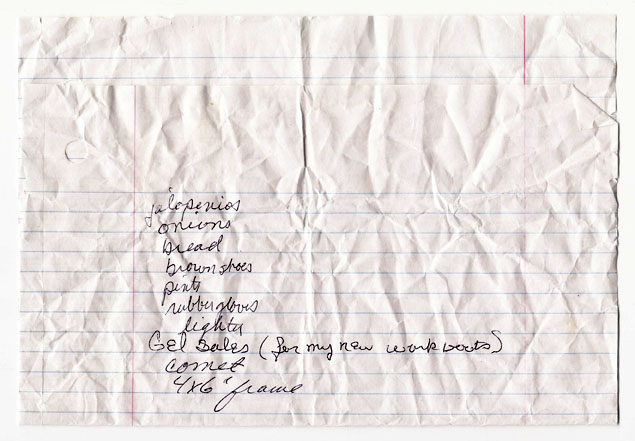 jalopenios
onions
bread
brown shoes
pints
rubber gloves
lighty
Gel Soles (for my new work boots)
comet
4x6" frame